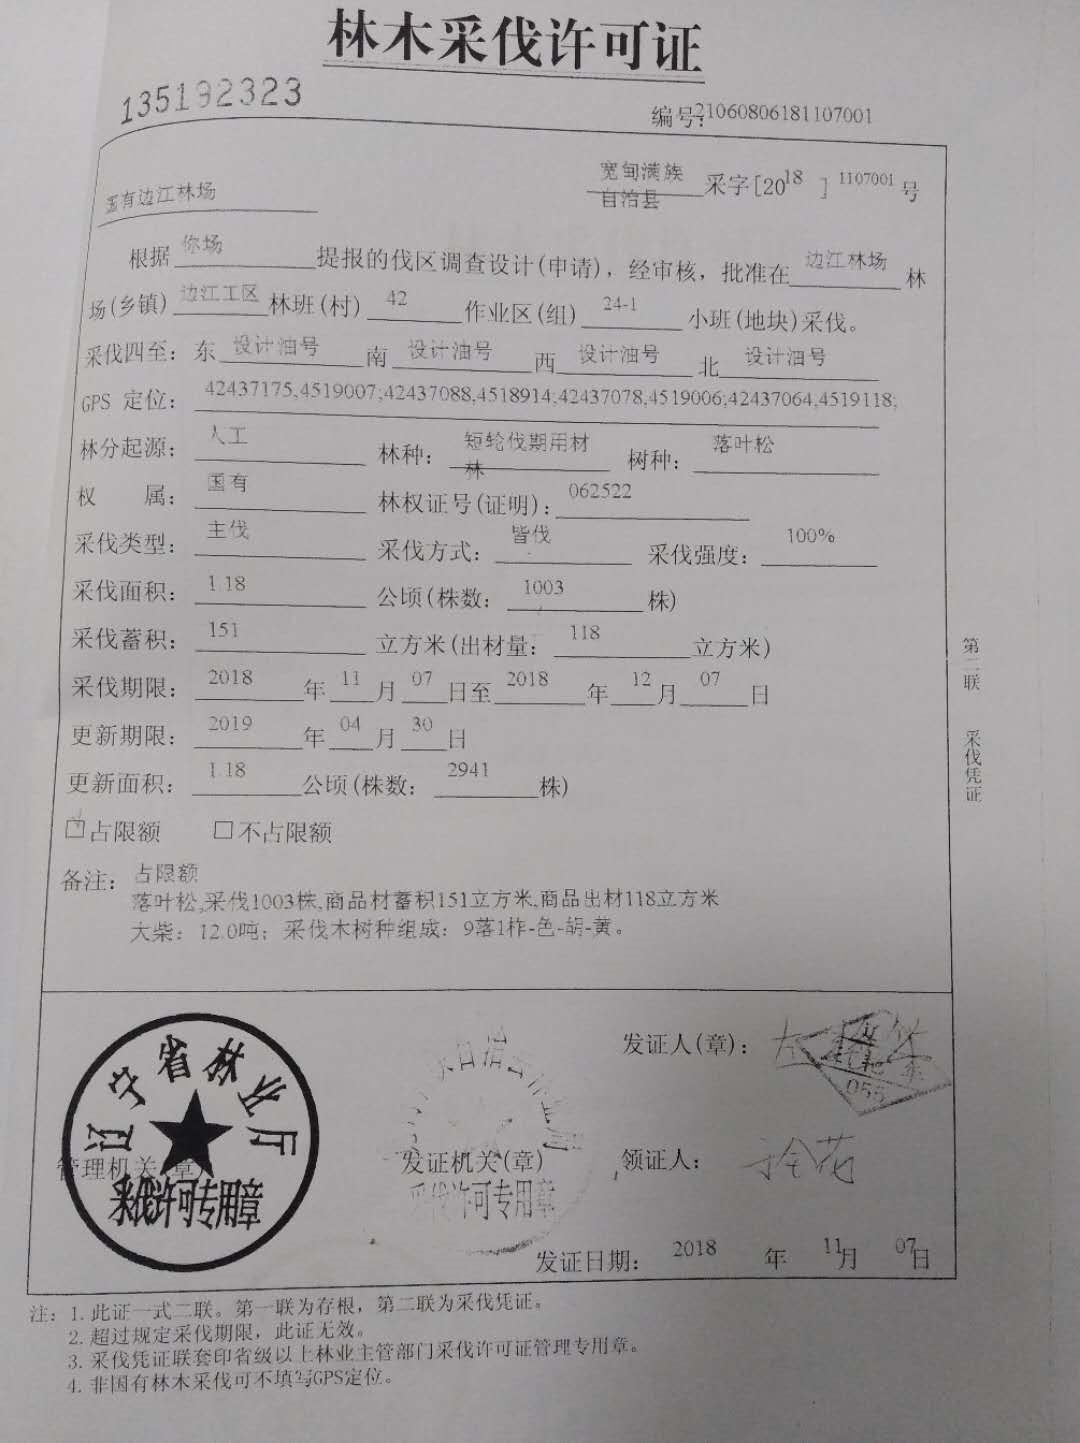 林木采伐许可证
135192323
编号:21060806181107001
国有边江林场
宽甸满族自治县 采字[2018]1107001号
根据 你场 提报的伐区调查设计(申请)，经审核，批准在 边江林场 林
场(乡镇) 边江工区 林班(村) 42 作业区(组) 24-1 小班(地块)采伐。
采伐四至: 东 设计油号 南 设计油号 西 设计油号 北 设计油号
GPS 定位: 42437175,4519007;42437088,4518914;42437078,4519006;42437064,4519118;
林分起源: 人工 林种: 短轮伐期用材林 树种: 落叶松
权 属: 国有 林权证号(证明): 062522
采伐类型: 主伐 采伐方式: 皆伐 采伐强度: 100%
采伐面积: 1.18 公顷(株数: 1003 株)
采伐蓄积: 151 立方米(出材量: 118 立方米)
采伐期限: 2018 年 11 月 07 日至 2018 年 12 月 07 日
更新期限: 2019 年 04 月 30 日
更新面积: 1.18 公顷(株数: 2941 株)
☑占限额 □不占限额
备注: 占限额
落叶松,采伐1003株,商品材蓄积151立方米,商品出材118立方米
大柴: 12.0吨; 采伐木树种组成: 9落1柞-色-胡-黄。
第二联 采伐凭证
辽宁省林业厅
管理机关(章)
采伐许可专用章
发证机关(章)
采伐许可专用章
发证人(章):
055
领证人:
发证日期: 2018 年 11月 07日
注: 1. 此证一式二联。第一联为存根，第二联为采伐凭证。
2. 超过规定采伐期限，此证无效。
3. 采伐凭证联套印省级以上林业主管部门采伐许可证管理专用章。
4. 非国有林木采伐可不填写GPS定位。